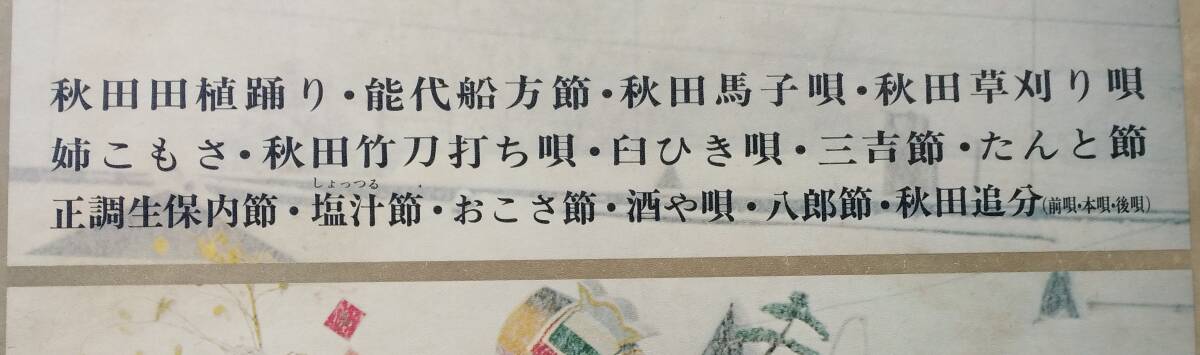 秋田田植踊り・能代船方節・秋田馬子唄・秋田草刈り唄
姉こもさ・秋田竹刀打ち唄・臼ひき唄・三吉節・たんと節
しょっつる
正調生保内節・塩汁節・おこさ節・酒や唄・八郎節・秋田追分(前唄・本唄・後唄)